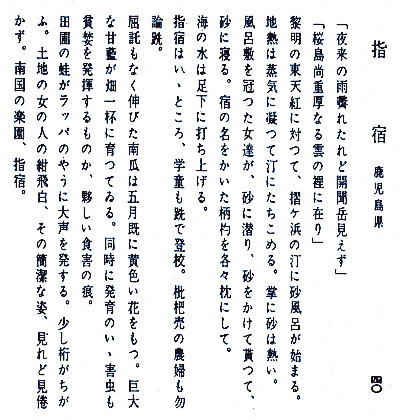 指宿 鹿児島県 四〇
「夜来の雨霽れたれど開聞岳見えず」
「桜島尚重厚なる雲の裡に在り」
黎明の東天紅に対つて、摺ケ浜の汀に砂風呂が始まる。
地熱は蒸気に凝つて汀にたちこめる。掌に砂は熱い。
風呂敷を冠つた女達が、砂に潜り、砂をかけて貰つて、
砂に寝る。宿の名をかいた柄杓を各々枕にして。
海の水は足下に打ち上げる。
指宿はいゝところ、学童も跣で登校。枇杷売の農婦も勿
論跣。
屈託もなく伸びた南瓜は五月既に黄色い花をもつ。巨大
な甘藍が畑一杯に育つてゐる。同時に発育のいゝ害虫も
貧婪を発揮するものか、夥しい食害の痕。
田圃の蛙がラッパのやうに大声を発する。少し桁がちが
ふ。土地の女の人の紺飛白、その簡潔な姿、見れど見倦
かず。南国の楽園、指宿。